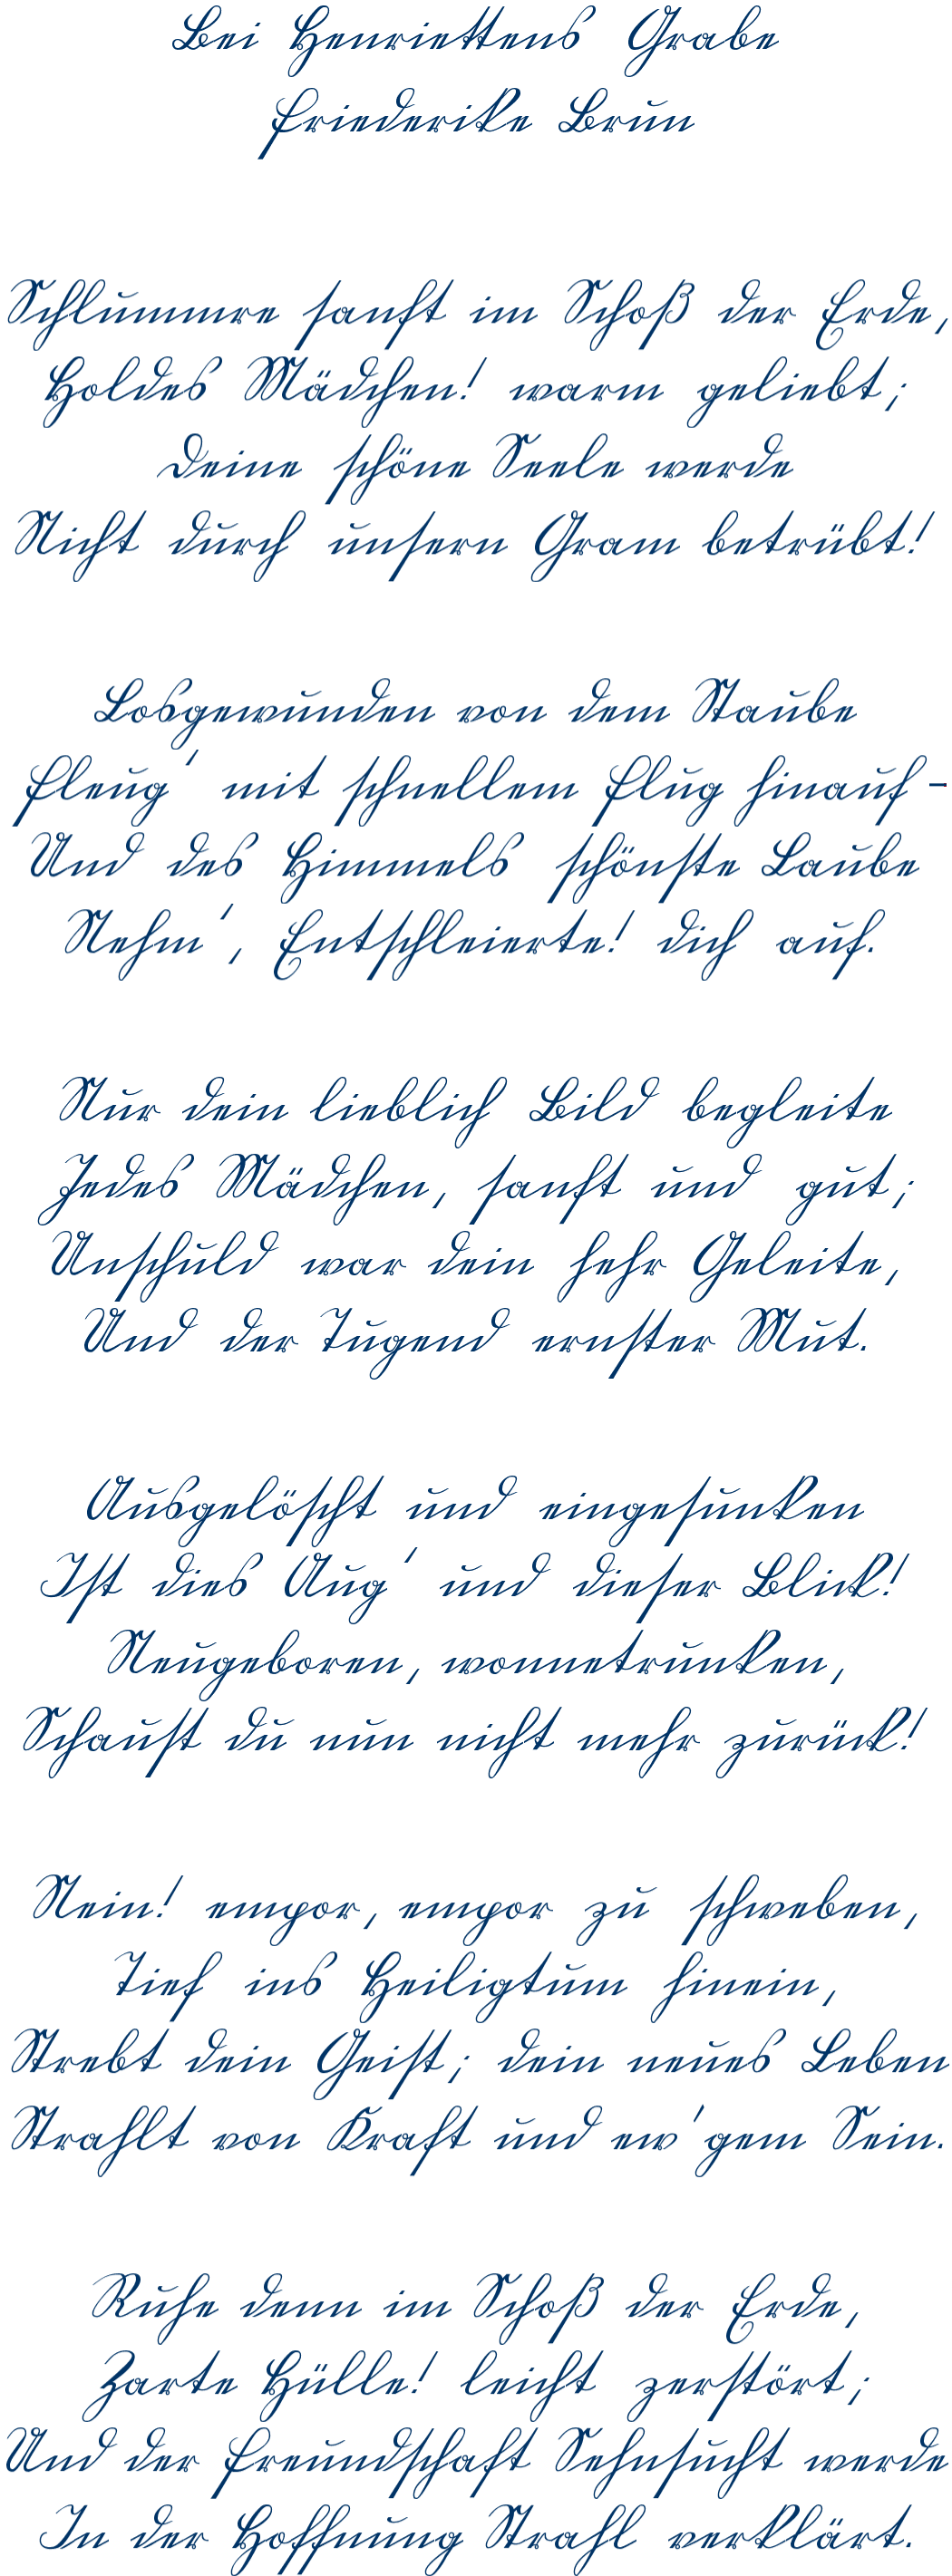 Bei Henriettens Grabe
Friederike Brun
Schlummre sanft im Schoß der Erde,
Holdes Mädchen! warm geliebt;
Deine schöne Seele werde
Nicht durch unsern Gram betrübt!
Losgewunden von dem Staube
Fleug' mit schnellem Flug hinauf -
Und des Himmels schönste Laube
Nehm', Entschleierte! dich auf.
Nur dein lieblich Bild begleite
Jedes Mädchen, sanft und gut;
Unschuld war dein hehr Geleite,
Und der Tugend ernster Mut.
Ausgelöscht und eingesunken
Ist dies Aug' und dieser Blick!
Neugeboren, wonnetrunken,
Schaust du nun nicht mehr zurück!
Nein! empor, empor zu schweben,
Tief ins Heiligtum hinein,
Strebt dein Geist; dein neues Leben
Strahlt von Kraft und ew'gem Sein.
Ruhe denn im Schoß der Erde,
Zarte Hülle! leicht zerstört;
Und der Freundschaft Sehnsucht werde
In der Hoffnung Strahl verklärt.